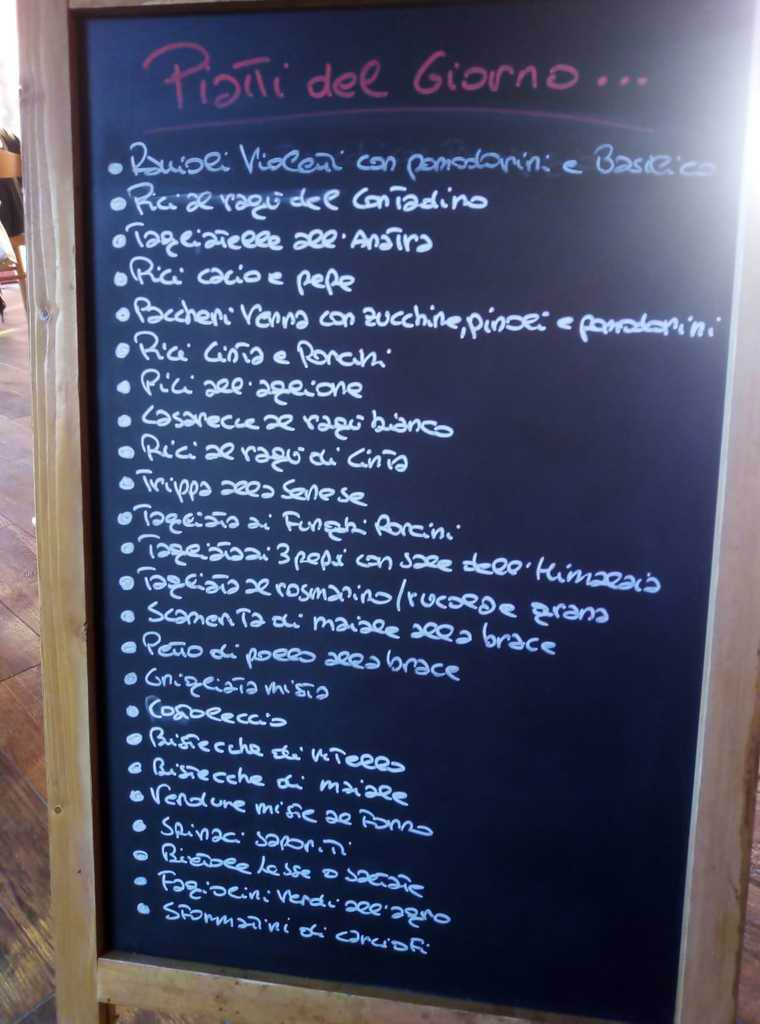 Piatti del Giorno...
• Ravioli Violenti con pomodorini e Basilico
• Pici al ragù del Contadino
• Tagliatelle all'Anatra
• Pici cacio e pepe
• Paccheri Verna con zucchine, pinoli e pomodorini
• Pici Cinta e Porcini
• Pici all'aglione
• Casarecce al ragù bianco
• Pici al ragù di Cinta
• Trippa alla Senese
• Tagliata ai Funghi Porcini
• Tagliata ai 3 pepi con sale dell'Himalaia
• Tagliata al rosmarino/rucola e grana
• Scamerita di maiale alla brace
• Petto di pollo alla brace
• Grigliata mista
• Costoleccio
• Bistecche di vitello
• Bistecche di maiale
• Verdure miste al Forno
• Spinaci saporiti
• Bietole lesse o saltate
• Fagiolini verdi all'agro
• Sformatini di carciofi